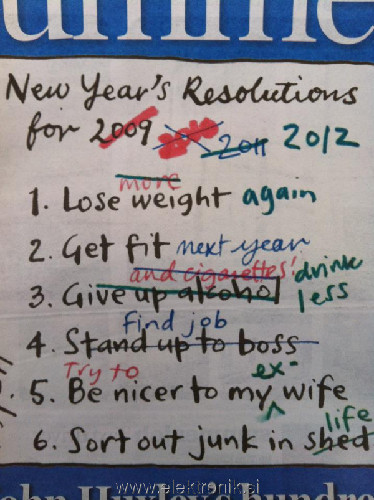 New Year's Resolutions
for 2009 2011 2012
more
1. Lose weight again
2. Get fit next year
and cigarettes' drink
3. Give up alcohol less
Find job
4. Stand up to boss
Try to ex-
5. Be nicer to my wife
life
6. Sort out junk in shed
www.elektronik.si